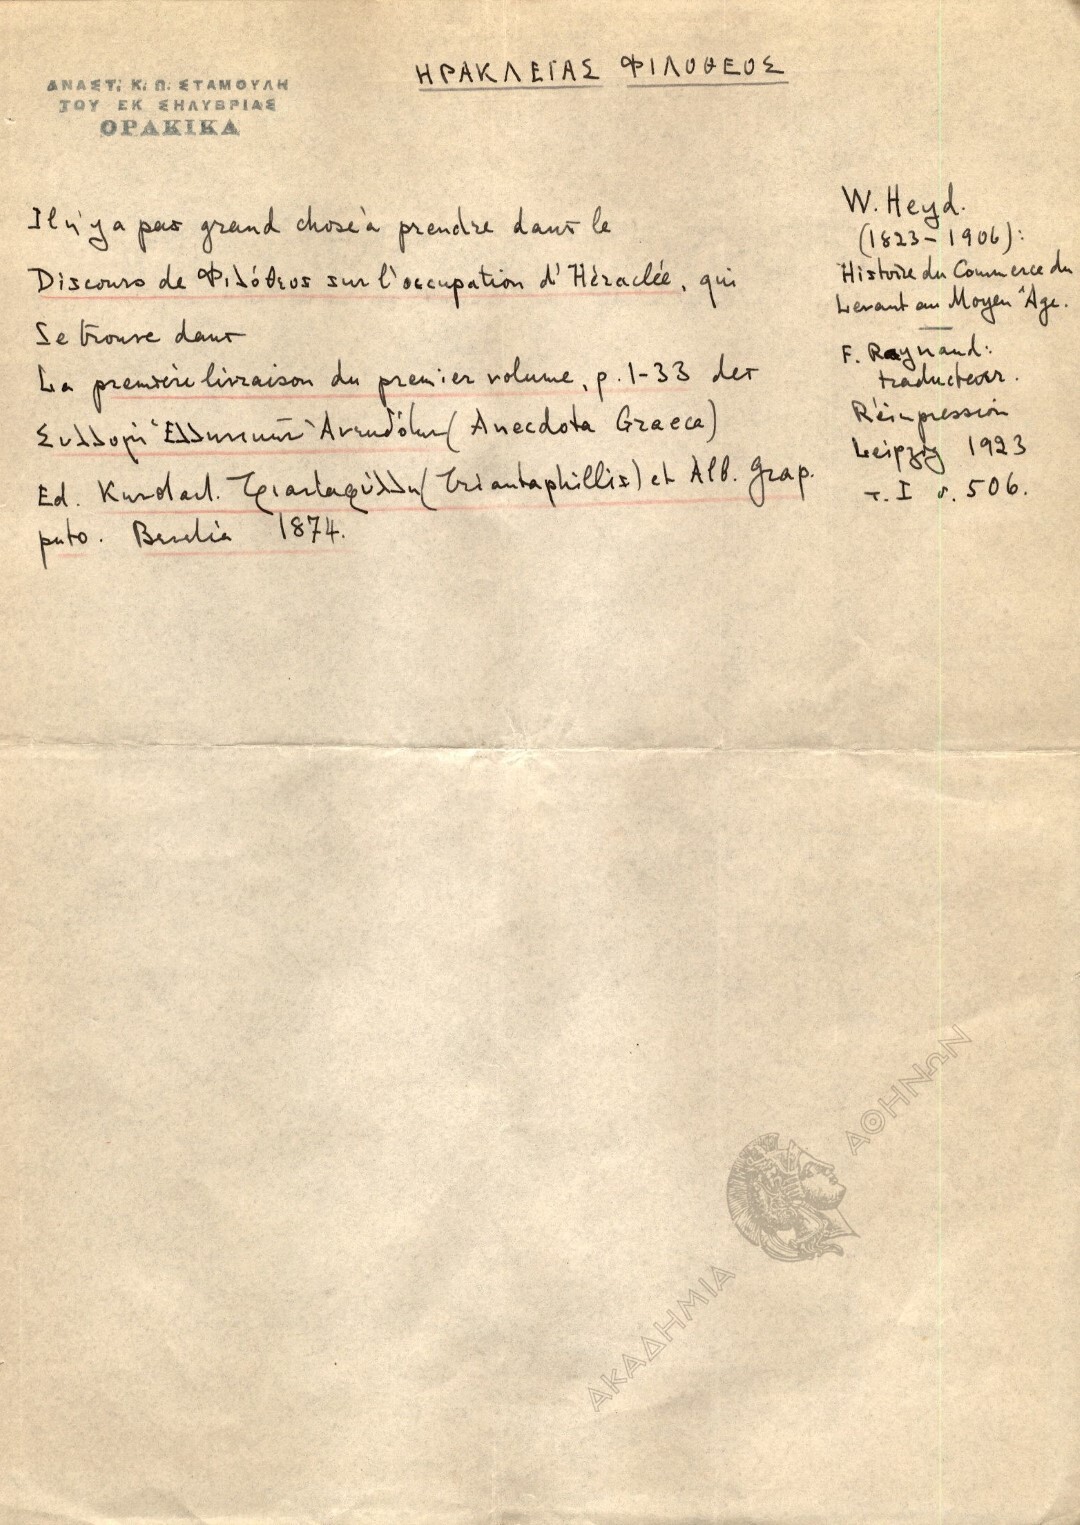 ΗΡΑΚΛΕΙΑΣ ΦΙΛΟΘΕΟΣ
ΑΝΑΣΤ. Κ. Π. ΣΤΑΜΟΥΛΗ
ΤΟΥ ΕΚ ΣΗΛΥΒΡΙΑΣ
ΘΡΑΚΙΚΑ
Il n'y a pas grand chose à prendre dans le
Discours de Φιλόθεος sur l'occupation d'Héraclée, qui
se trouve dans
La première livraison du premier volume, p. 1-33 der
Συλλογή "Ελληνικών" Ανεκδότων (Anecdota Graeca)
Ed. Κωνσταντ. Τριανταφύλλη (Triantaphillis) et Alb. Grap.
puto. Βενετία 1874.
W. Heyd.
(1823-1906):
Histoire du Commerce du
Levant au Moyen Âge.
F. Raynaud:
traducteur.
Réimpression
Leipzig 1923
τ. I σ. 506.
ΑΚΑΔΗΜΙΑ ΑΘΗΝΩΝ